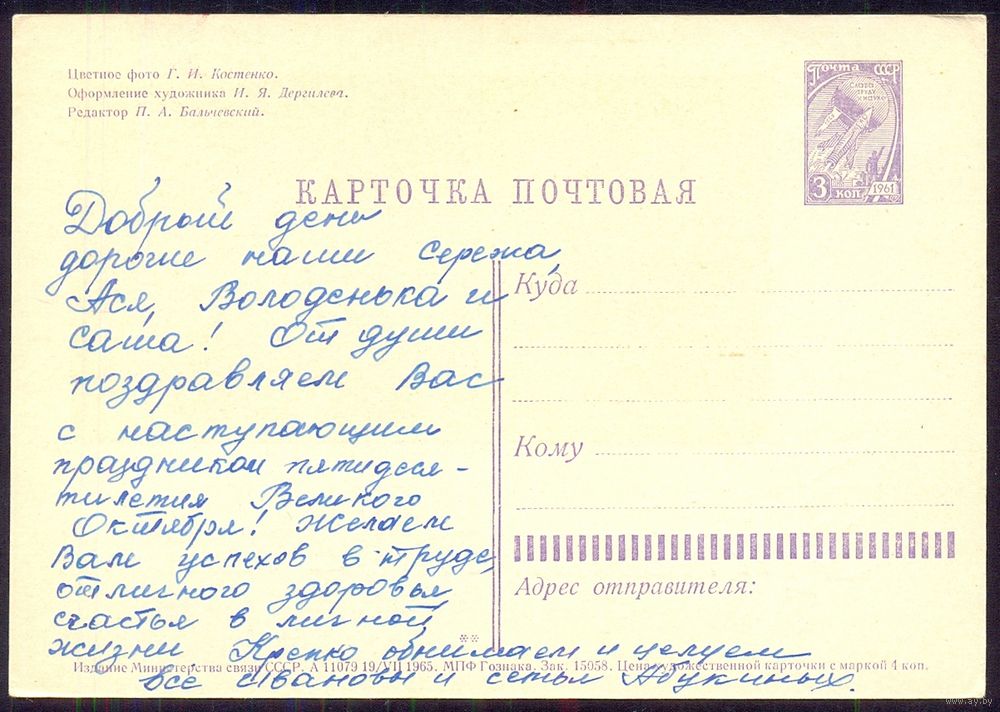 Цветное фото Г. И. Костенко.
Оформление художника И. Я. Дергилева.
Редактор П. А. Бальчевский.
Почта СССР
СЛАВА
ТРУДУ
И НАУКЕ
3 КОП 1961
КАРТОЧКА ПОЧТОВАЯ
Добрый день
дорогие наши Сережа,
Ася, Володенька и
Саша! От души
поздравляем Вас
с наступающим
праздником пятидеся-
тилетия Великого
Октября! Желаем
Вам успехов в труде,
отличного здоровья
счастья в личной
жизни Крепко обнимаем и целуем
все Ивановы и семья Абукиных.
Куда
Кому
Адрес отправителя:
**
Издание Министерства связи СССР. А 11079 19/VII 1965. МПФ Гознака. Зак. 15058. Цена художественной карточки с маркой 4 коп.
www.ay.by